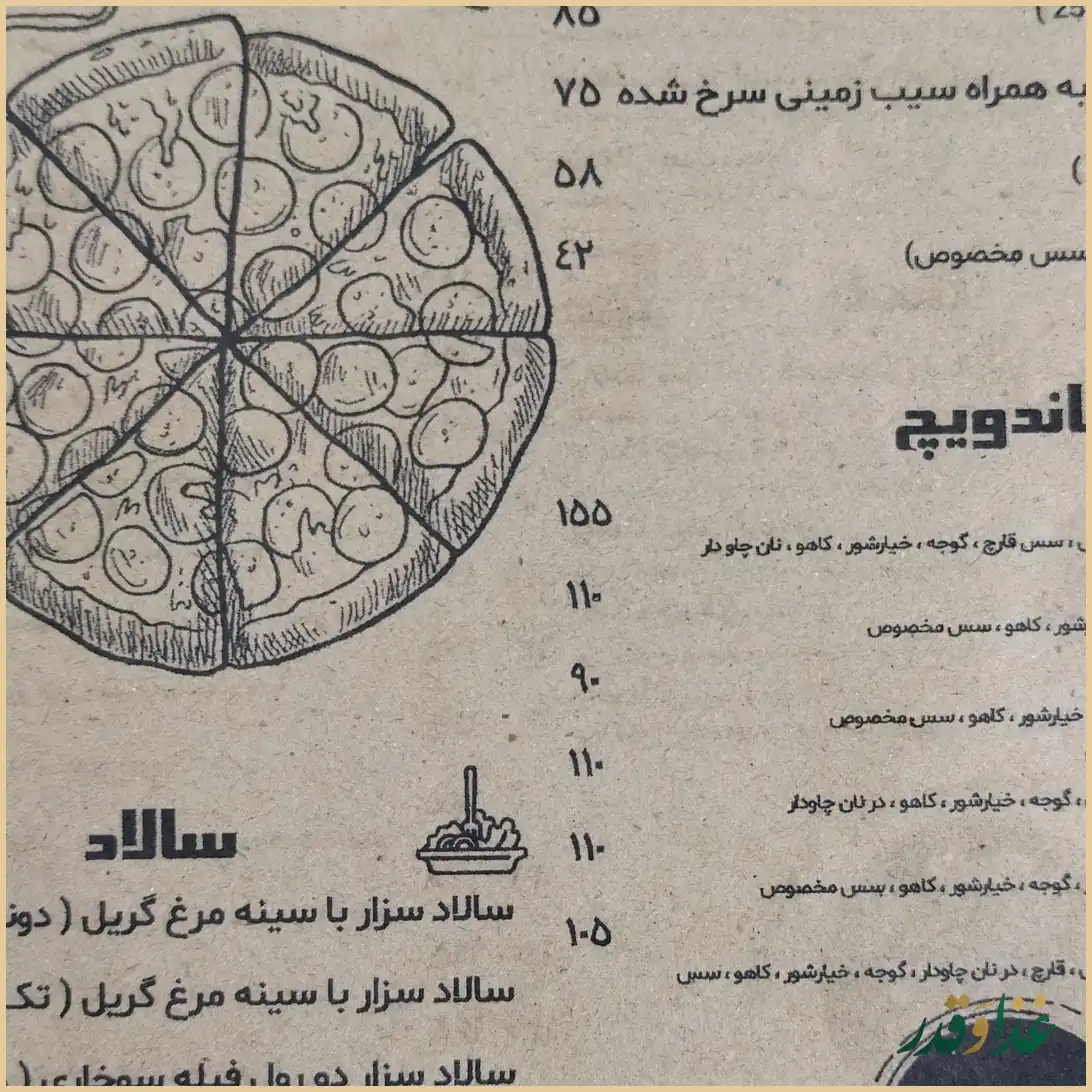 ۸۵
به همراه سیب زمینی سرخ شده ۷۵
۵۸
سس مخصوص) ۴۲
۱۵۵
؛ سس قارچ ، گوجه ، خیارشور ، کاهو ، نان چاو دار
۱۱۰
شور ، کاهو ، سس مخصوص
۹۰
خیارشور ، کاهو ، سس مخصوص
۱۱۰
، گوجه ، خیارشور ، کاهو ، در نان چاودار
۱۱۰
، گوجه ، خیارشور ، کاهو ، سس مخصوص
۱۰۵
، قارچ ، در نان چاودار ، گوجه ، خیارشور ، کاهو ، سس
سالاد
سالاد سزار با سینه مرغ گریل (
سالاد سزار با سینه مرغ گریل (
سالاد سزار دو رول فیله سوخاری (
غذا و قدر